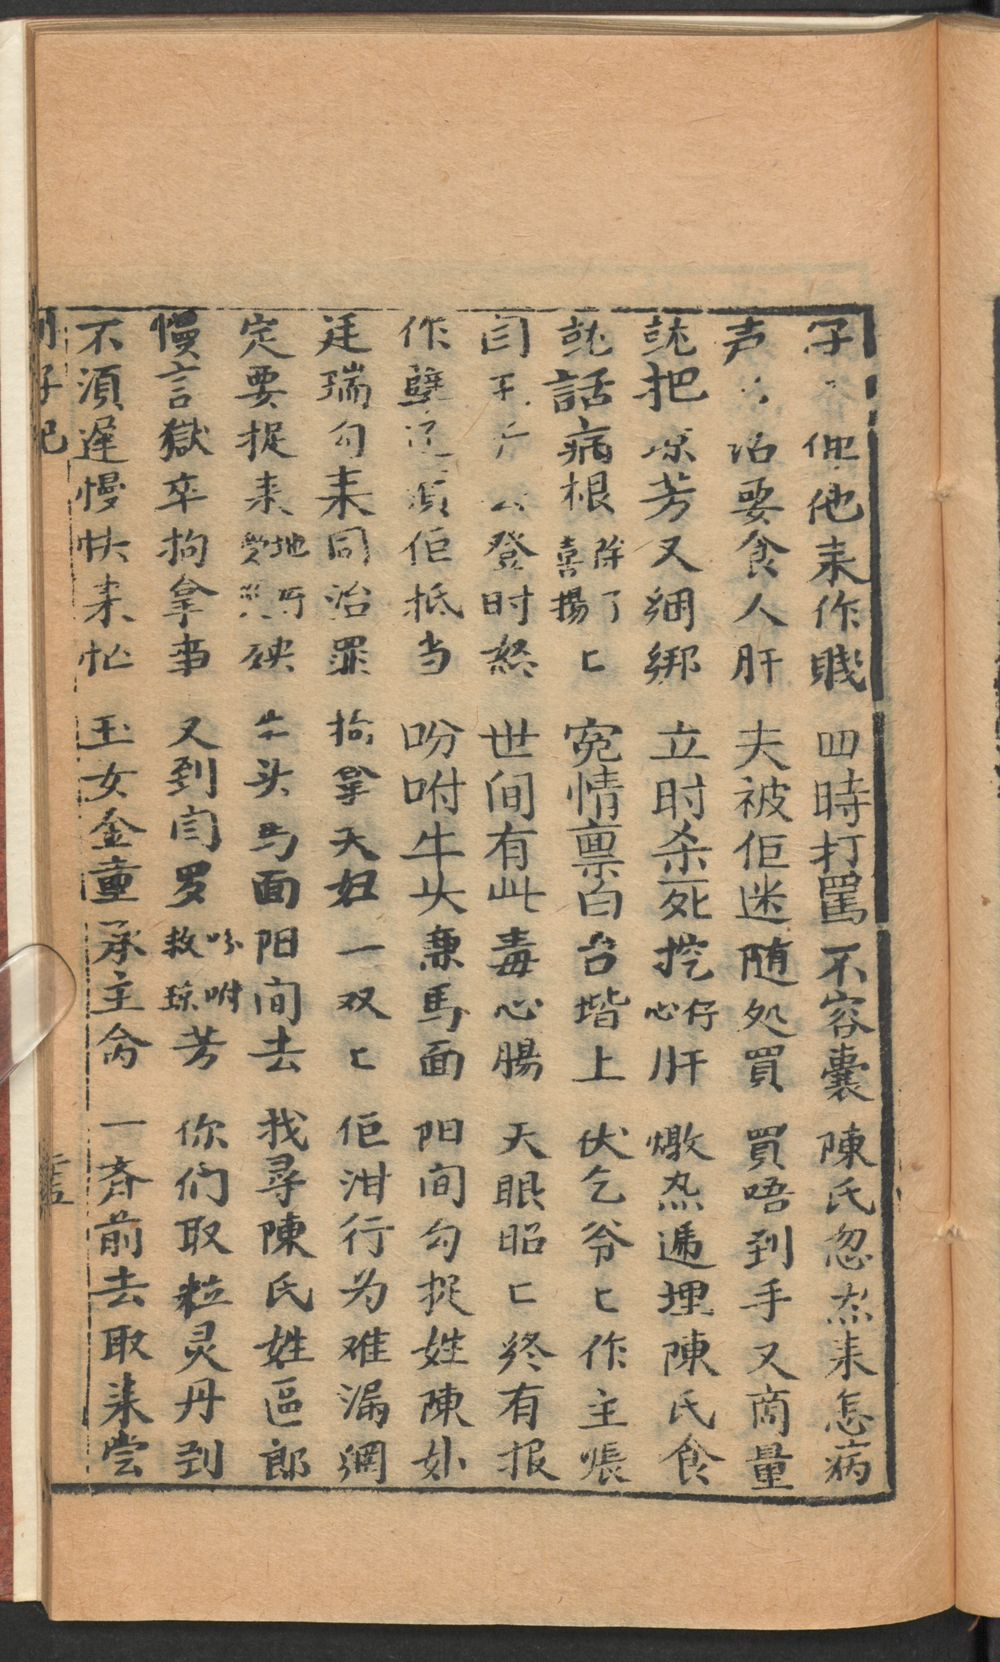 仔 他他耒作賤 四時打罵不容囊 陳氏忽然耒怎病
声 話要食人肝 夫被佢迷随処買 買唔到手又商量
就把琼芳又綑綁 立时杀死挖心仔肝 燉热遞埋陳氏食
就話病根除了喜揚匕 冤情禀白台堦上 伏乞爷匕作主張
闫王 登时怒 世间有此毒心腸 天眼昭匕終有报
作孽 須佢抵当 吩咐牛头兼馬面 阳间勾捉姓陳妳
廷瑞勾耒同治罪 拘拿夫妇一双匕 佢泔行为难漏網
定要捉耒地府受災殃 牛头马面阳间去 找尋陳氏姓區郎
慢言獄卒拘拿事 又到闫罗吩咐救琼芳 你们取粒灵丹到
不須遅慢快耒忙 玉女金童承主命 一斉前去取耒尝